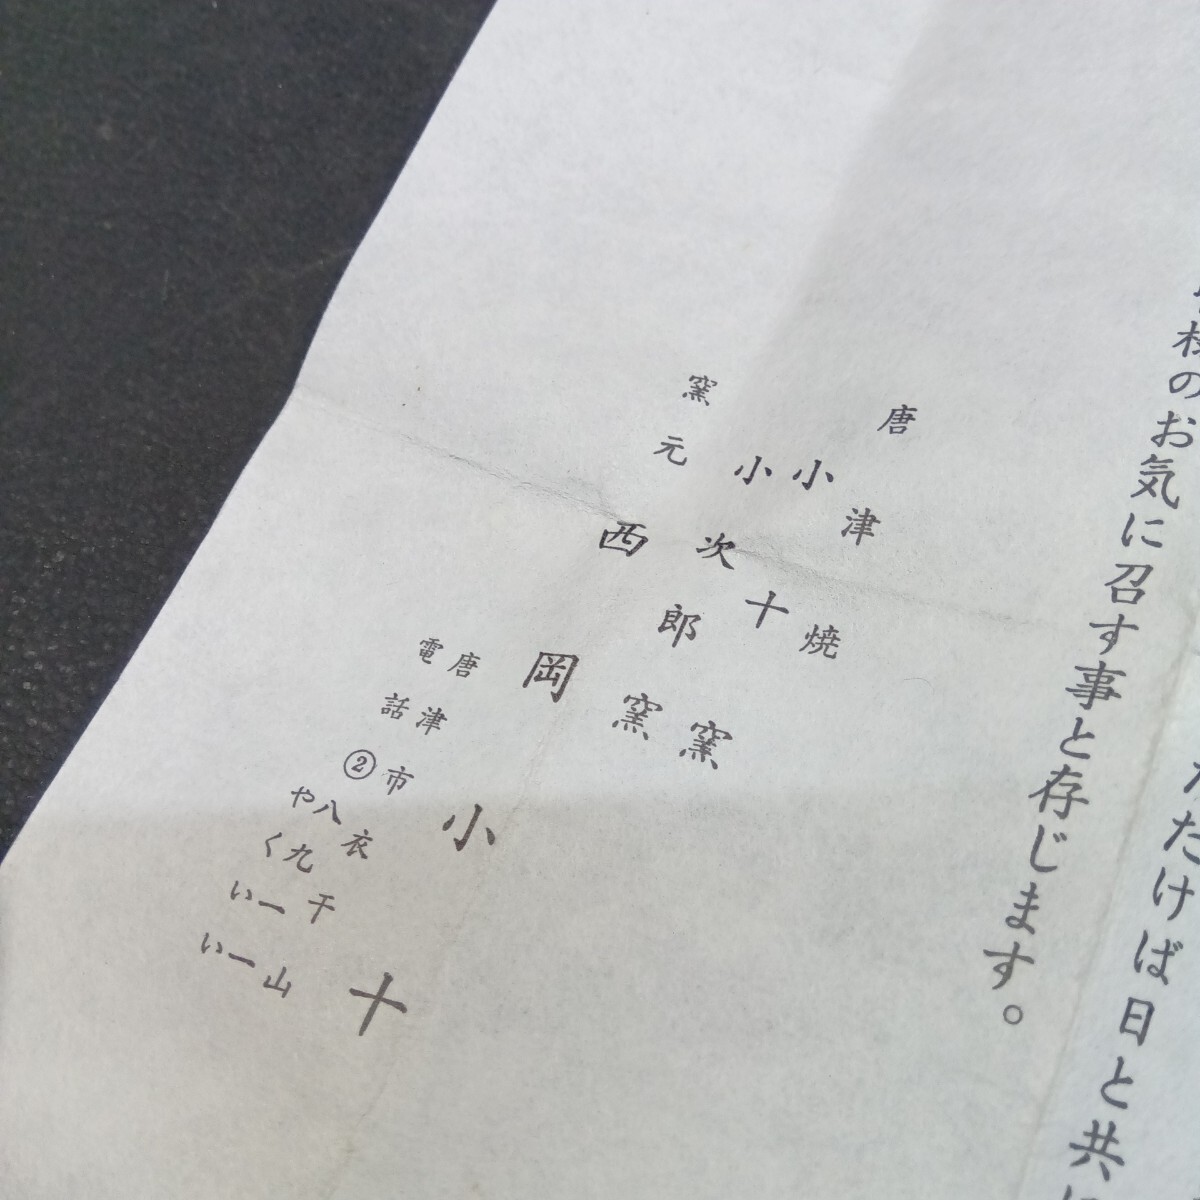 ただけば日と共に
様のお気に召す事と存じます。
唐津焼
小十窯
小次郎窯
窯元 西岡小十
唐津市衣干山
電話②八九一一
やくいい